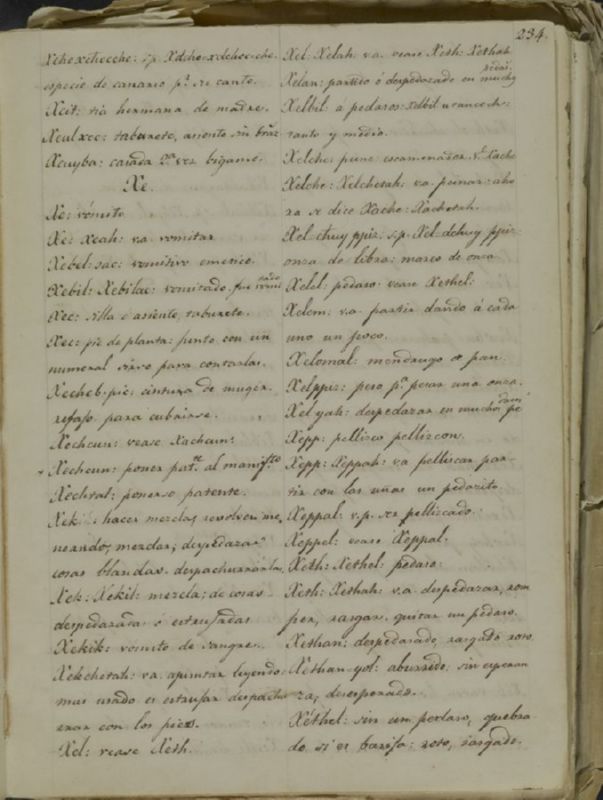 234.
Xchexchecche: s.p. Xdcho-xdchec-che.
especie de canario pª. se cante.
Xcit: tia hermana de madre.
Xculxec: taburete, asiento sin braz
Xcuyba: casada 2ª vez bigamo.
Xe.
Xe: vómito
Xe: Xeah: va. vomitar
Xebel-sac: vomitivo emetico.
Xebil: Xebilac: vomitado, fue vomi
tado
Xec: silla ó asiento, taburete.
Xec: pie de planta: junto con un
numeral sirve para contarlas.
Xecheb-pic: cintura de muger.
refajo para cubrirse.
Xechcun: vease Xachcun:
+ Xechcun: poner patte. al manifto
Xechtal: ponerse patente.
Xek: hacer mezclas, revolver me
neando, mezclar; despedazar
cosas blandas. despachurrarlas.
Xek: Xekil: mezcla; de cosas
despedazadas ó estrujadas
Xekik: vomito de sangre.
Xekchetah: va. apuntar leyendo
mas usado es estrujar despachu
rrar con los pies.
Xel: vease Xeth.
Xel: Xelah: v.a. vease Xeth: Xethah
Xelan: partido ó despedazado en muchos
pedas.
Xelbil: a pedazos: xelbil u cancech:
tanto y medio.
Xelche: peine escarmenador. Vº. Xache
Xelche: Xelchetah: va. peinar: aho
ra se dice Xache: Xachetah.
Xel-chuy ppiz: s.p. Xel-dchuy ppiz:
onza de libra: marco de onza
Xelel: pedazo: vease Xethel:
Xelem: v.a. partir dando á cada
uno un poco.
Xelomal: mendrugo de pan.
Xelppiz: peso pª. pesar una onza.
Xelyah: despedazar en muchos pe
dazs
Xepp: pellizco pellizcon.
Xepp: Xeppah: va pelliscar par
tir con las uñas un pedazito.
Xeppal: v.p. ser pellizcado.
Xeppel: vease Xeppal.
Xeth: Xethel: pedazo:
Xeth: Xethah: v.a. despedazar, rom
per, rasgar. quitar un pedazo.
Xethan: despedazado, rasgado roto
Xethan-yol: aburrido: sin esperan
za, desesperado.
Xethel: sin un pedazo, quebra
do si es barija: roto, rasgado.